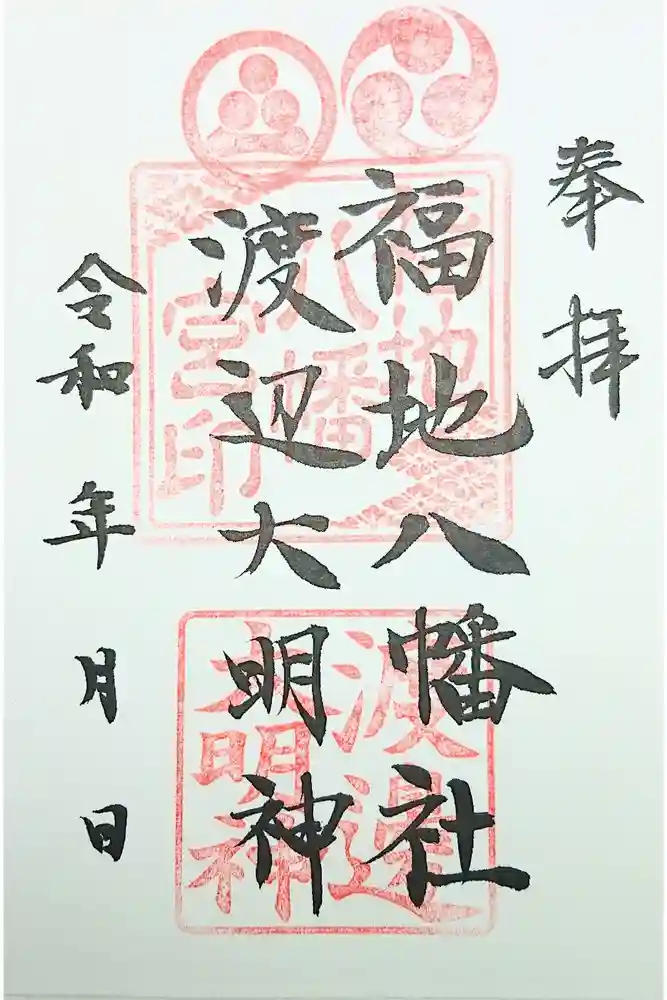 奉拝
福地八幡社
渡辺大明神
令和 年 月 日
福地
八幡
宮印
渡邉
大明神